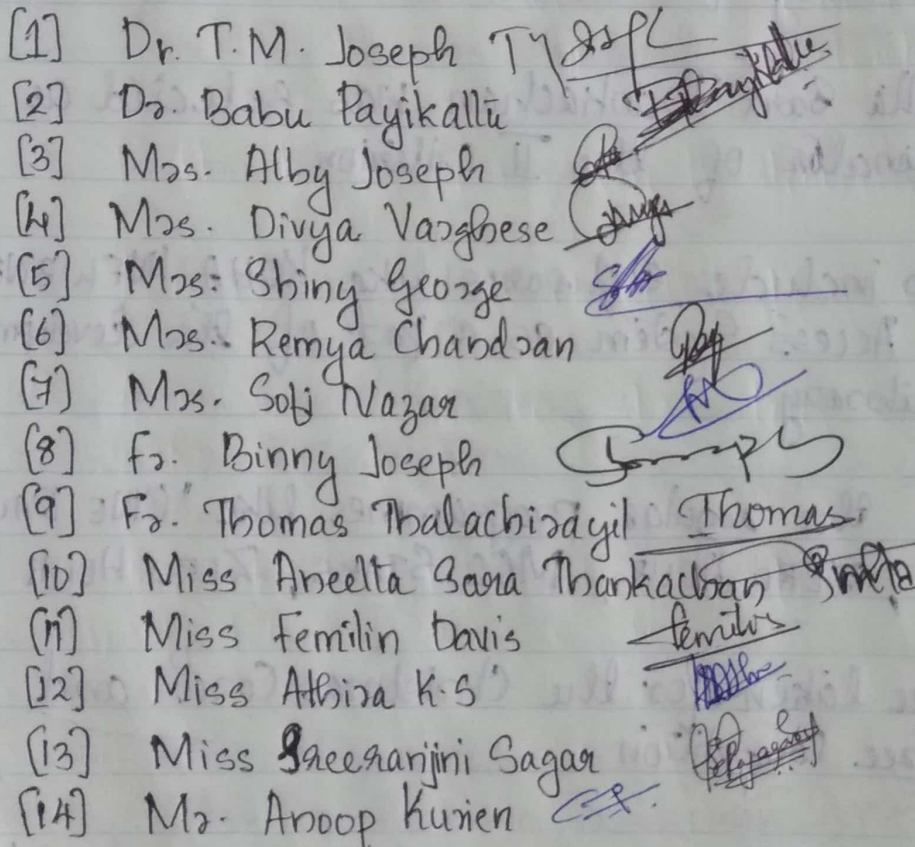 [1] Dr. T.M. Joseph
[2] Dr. Babu Payikallu
[3] Mrs. Alby Joseph
[4] Mrs. Divya Varghese
[5] Mrs: Shiny George
[6] Mrs. Remya Chandran
[7] Mrs. Sobi Nazar
[8] Fr. Binny Joseph
[9] Fr. Thomas Thalachirayil Thomas
[10] Miss Aneelta Sara Thankachan
[11] Miss Femilin Davis femilin
[12] Miss Athira K.S
[13] Miss Sreeranjini Sagar
[14] Mr. Anoop Kurien